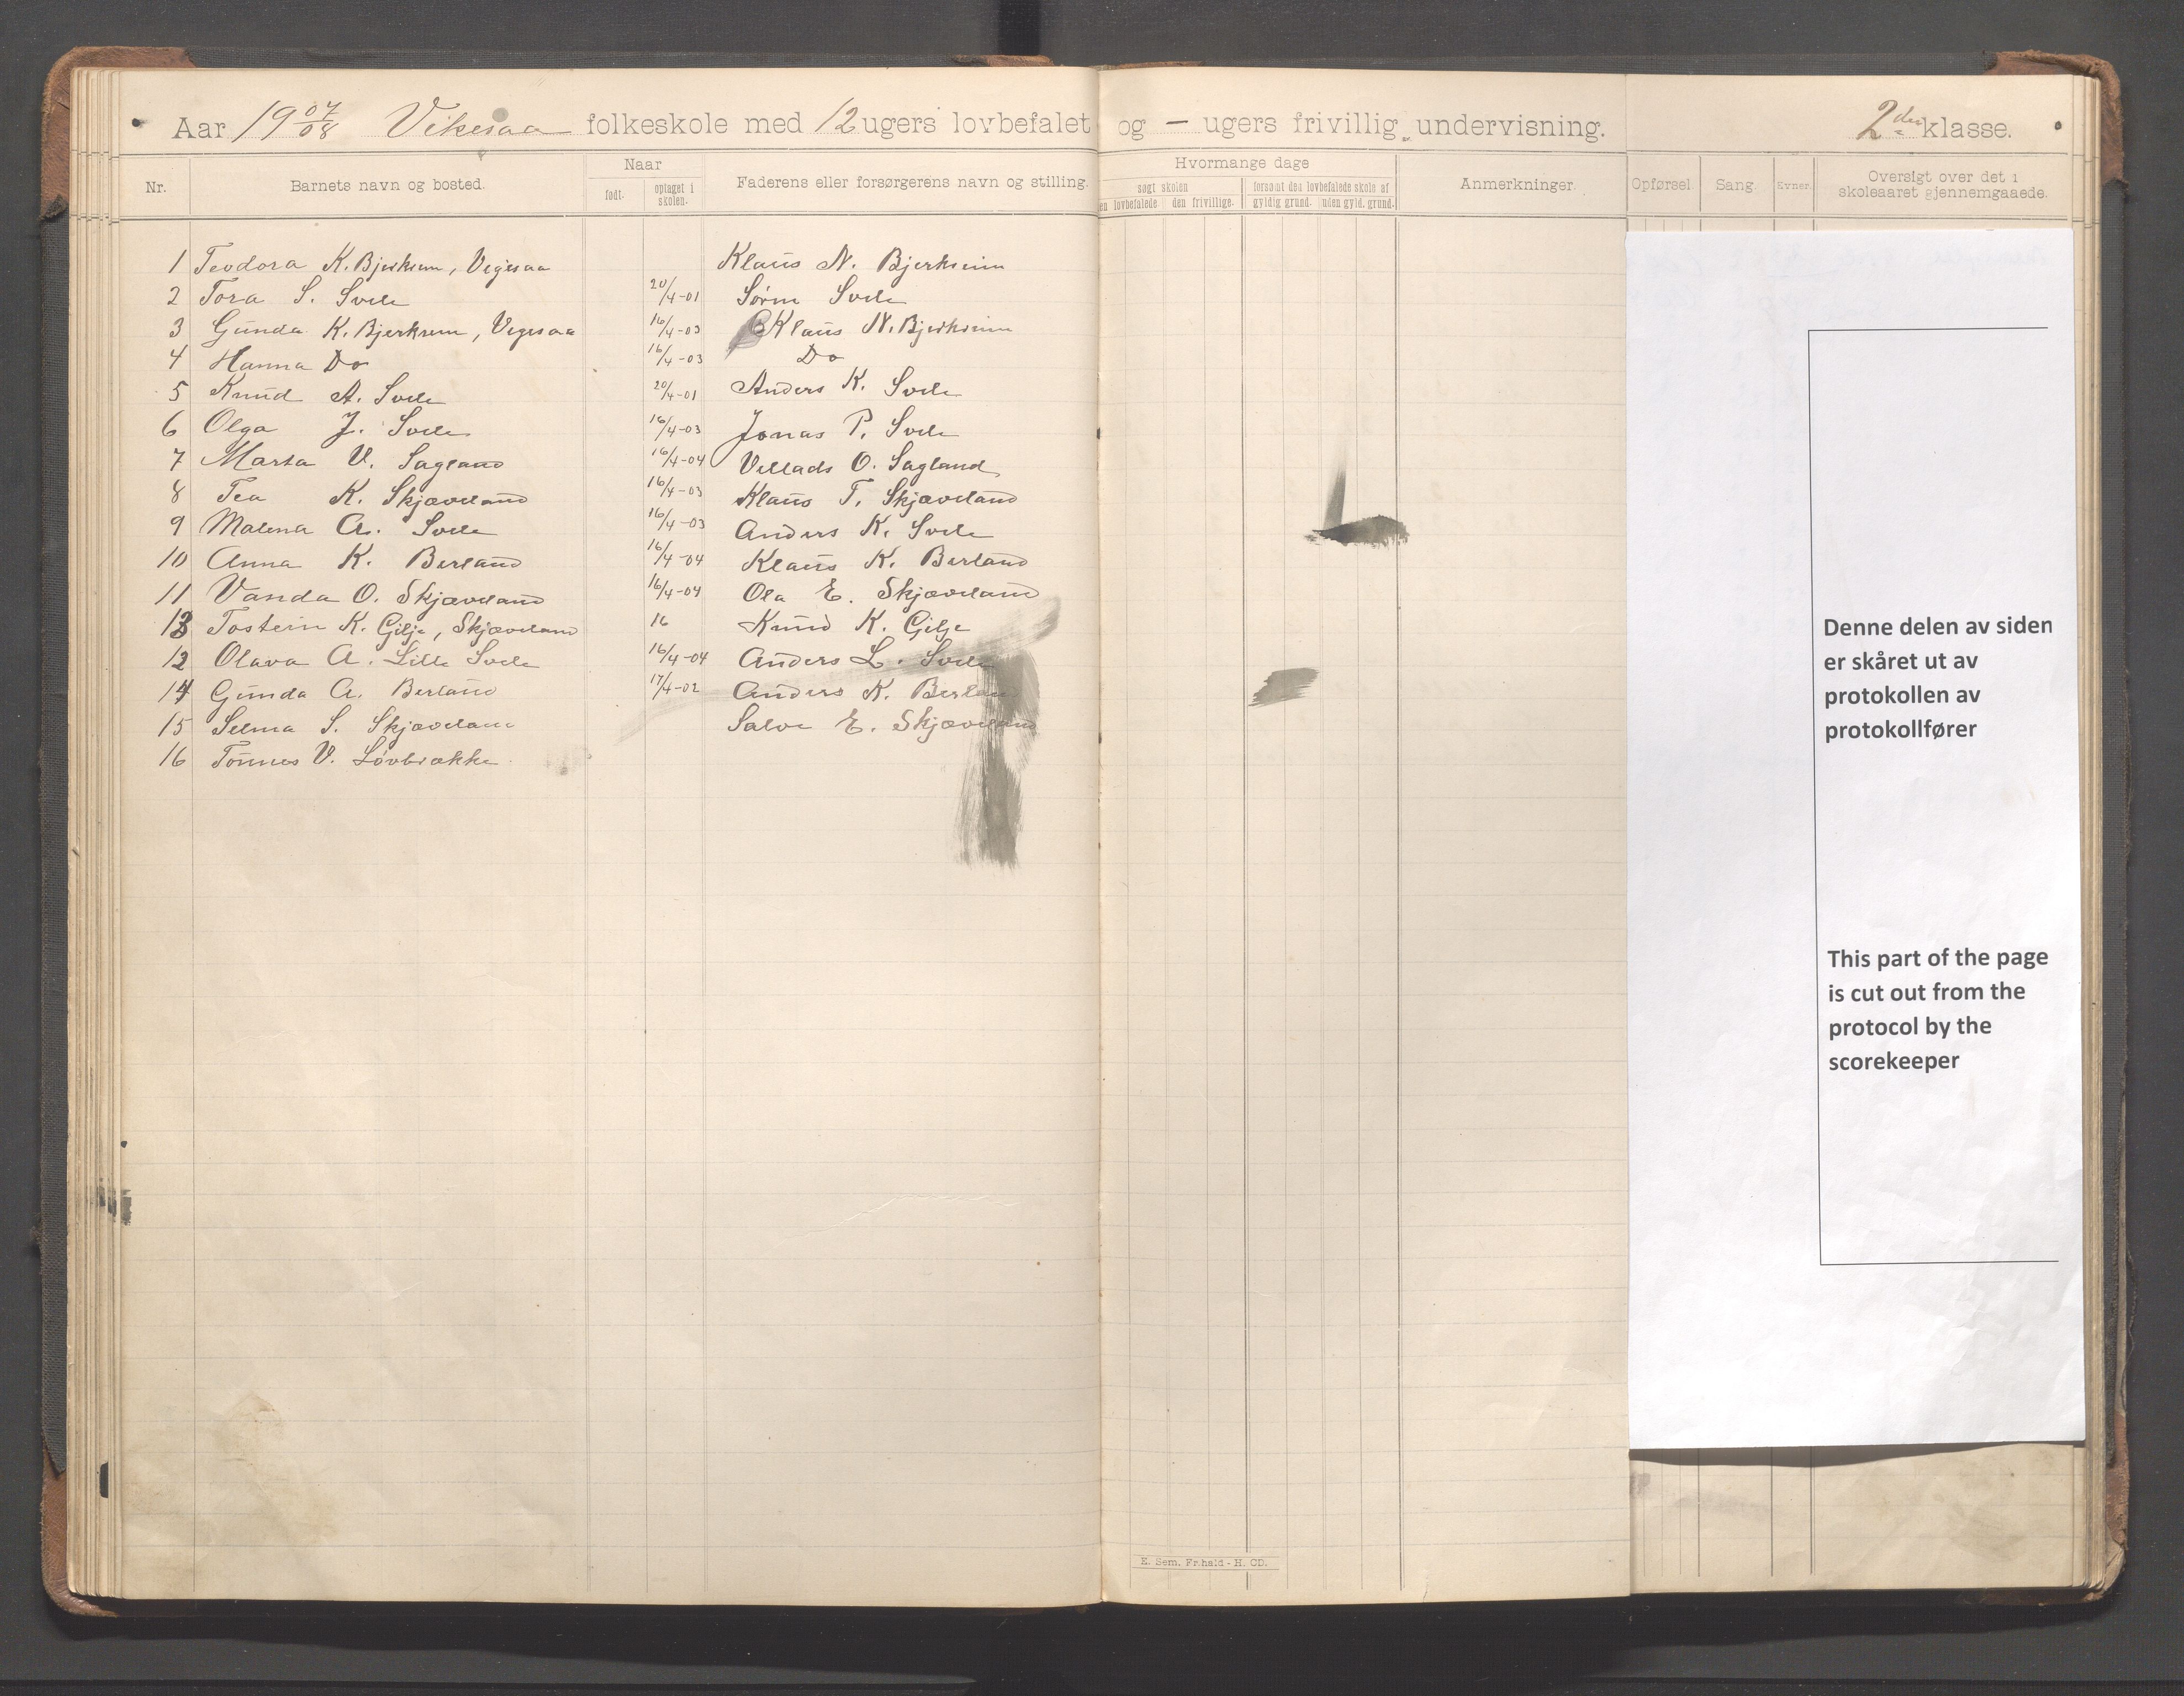 Aar 19 07/08 Vikesaa folkeskole med 12 ugers lovbefalet og – ugers frivillig undervisning. 2den klasse.
Nr. Barnets navn og bosted. Naar født. optaget i skolen. Faderens eller forsørgerens navn og stilling. Hvormange dage søgt skolen en lovbefalede. den frivillige. forsømt den lovbefalede skole af gyldig grund. uden gyld. grund. Anmerkninger. Opførsel. Sang. Evner. Oversigt over det i skoleaaret gjennemgaaede.
1 Teodora K. Bjerkrem, Vigesaa Klaus N. Bjerkreim
2 Tora S. Svele 20/4-01 Søren Svele
3 Gunda K. Bjerkrem, Vigesaa 16/4-03 Klaus N. Bjerkreim
4 Hanna Do 16/4-03 Do
5 Knud A. Svele 20/4-01 Anders K. Svele
6 Olga J. Svele 16/4-03 Jonas P. Svele
7 Marta V. Sagland 16/4-04 Villads O. Sagland
8 Tea K. Skjæveland 16/4-03 Klaus T. Skjæveland
9 Malena A. Svele 16/4-03 Anders K. Svele
10 Anna K. Berland 16/4-04 Klaus K. Berland
11 Vanda O. Skjæveland 16/4-04 Ola E. Skjæveland
13 Tostein K. Gilje, Skjæveland 16 Knud K. Gilje
12 Olava A. Lille Svele 16/4-04 Anders L. Svele
14 Gunda A. Berland 17/4-02 Anders K. Berland
15 Selma S. Skjæveland Salve E. Skjæveland
16 Tønnes V. Løvbrække
E. Sem. Fr.hald - H. CD.
Denne delen av siden
er skåret ut av
protokollen av
protokollfører
This part of the page
is cut out from the
protocol by the
scorekeeper